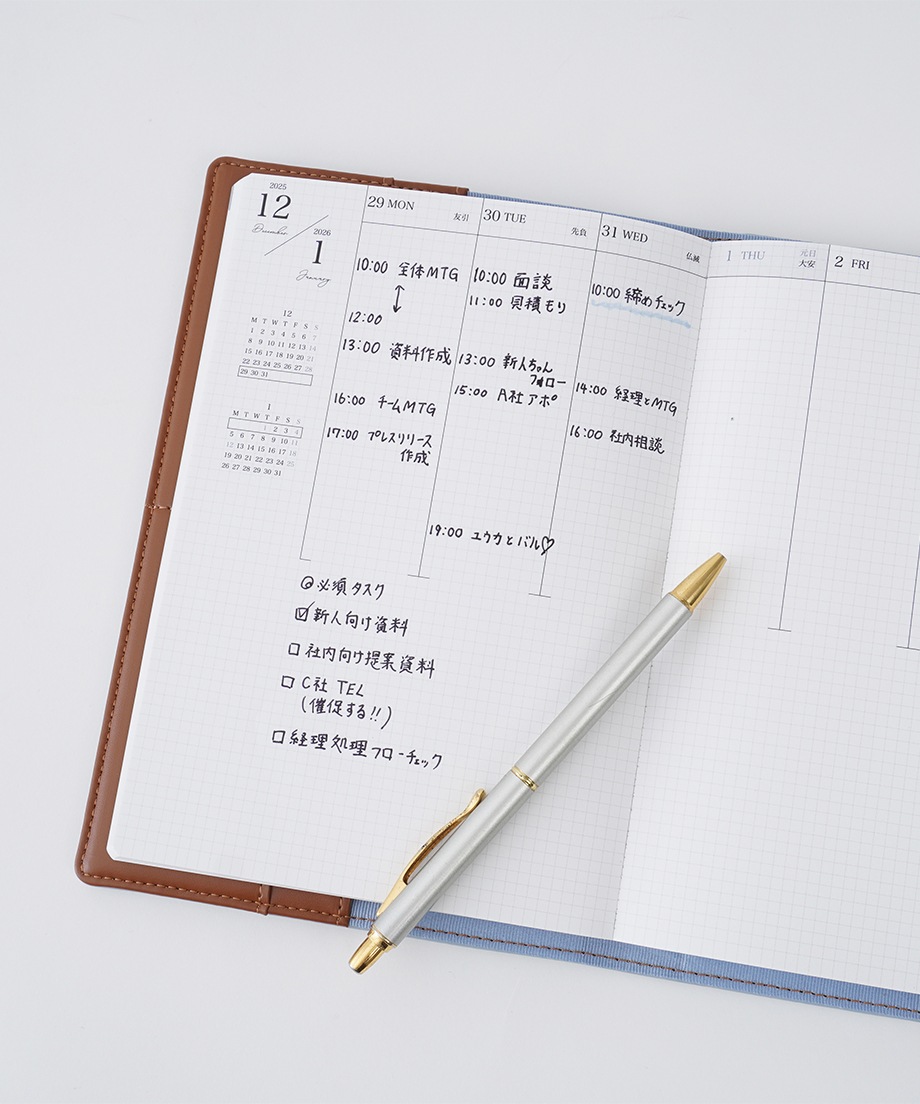 2025
12
December
2026
1
January
12
M T W T F S S
1 2 3 4 5 6 7
8 9 10 11 12 13 14
15 16 17 18 19 20 21
22 23 24 25 26 27 28
29 30 31
1
M T W T F S S
1 2 3 4
5 6 7 8 9 10 11
12 13 14 15 16 17 18
19 20 21 22 23 24 25
26 27 28 29 30 31
29 MON
友引
10:00 全体MTG
12:00
13:00 資料作成
16:00 チームMTG
17:00 プレスリリース
作成
30 TUE
先負
10:00 面談
11:00 見積もり
13:00 新人ちゃん
フォロー
15:00 A社アポ
19:00 ユウカとバル♡
31 WED
仏滅
10:00 締めチェック
14:00 経理とMTG
16:00 社内相談
1 THU
元日
大安
2 FRI
◎必須タスク
☑新人向け資料
☐社内向け提案資料
☐C社 TEL
(催促する!!)
☐経理処理フローチェック